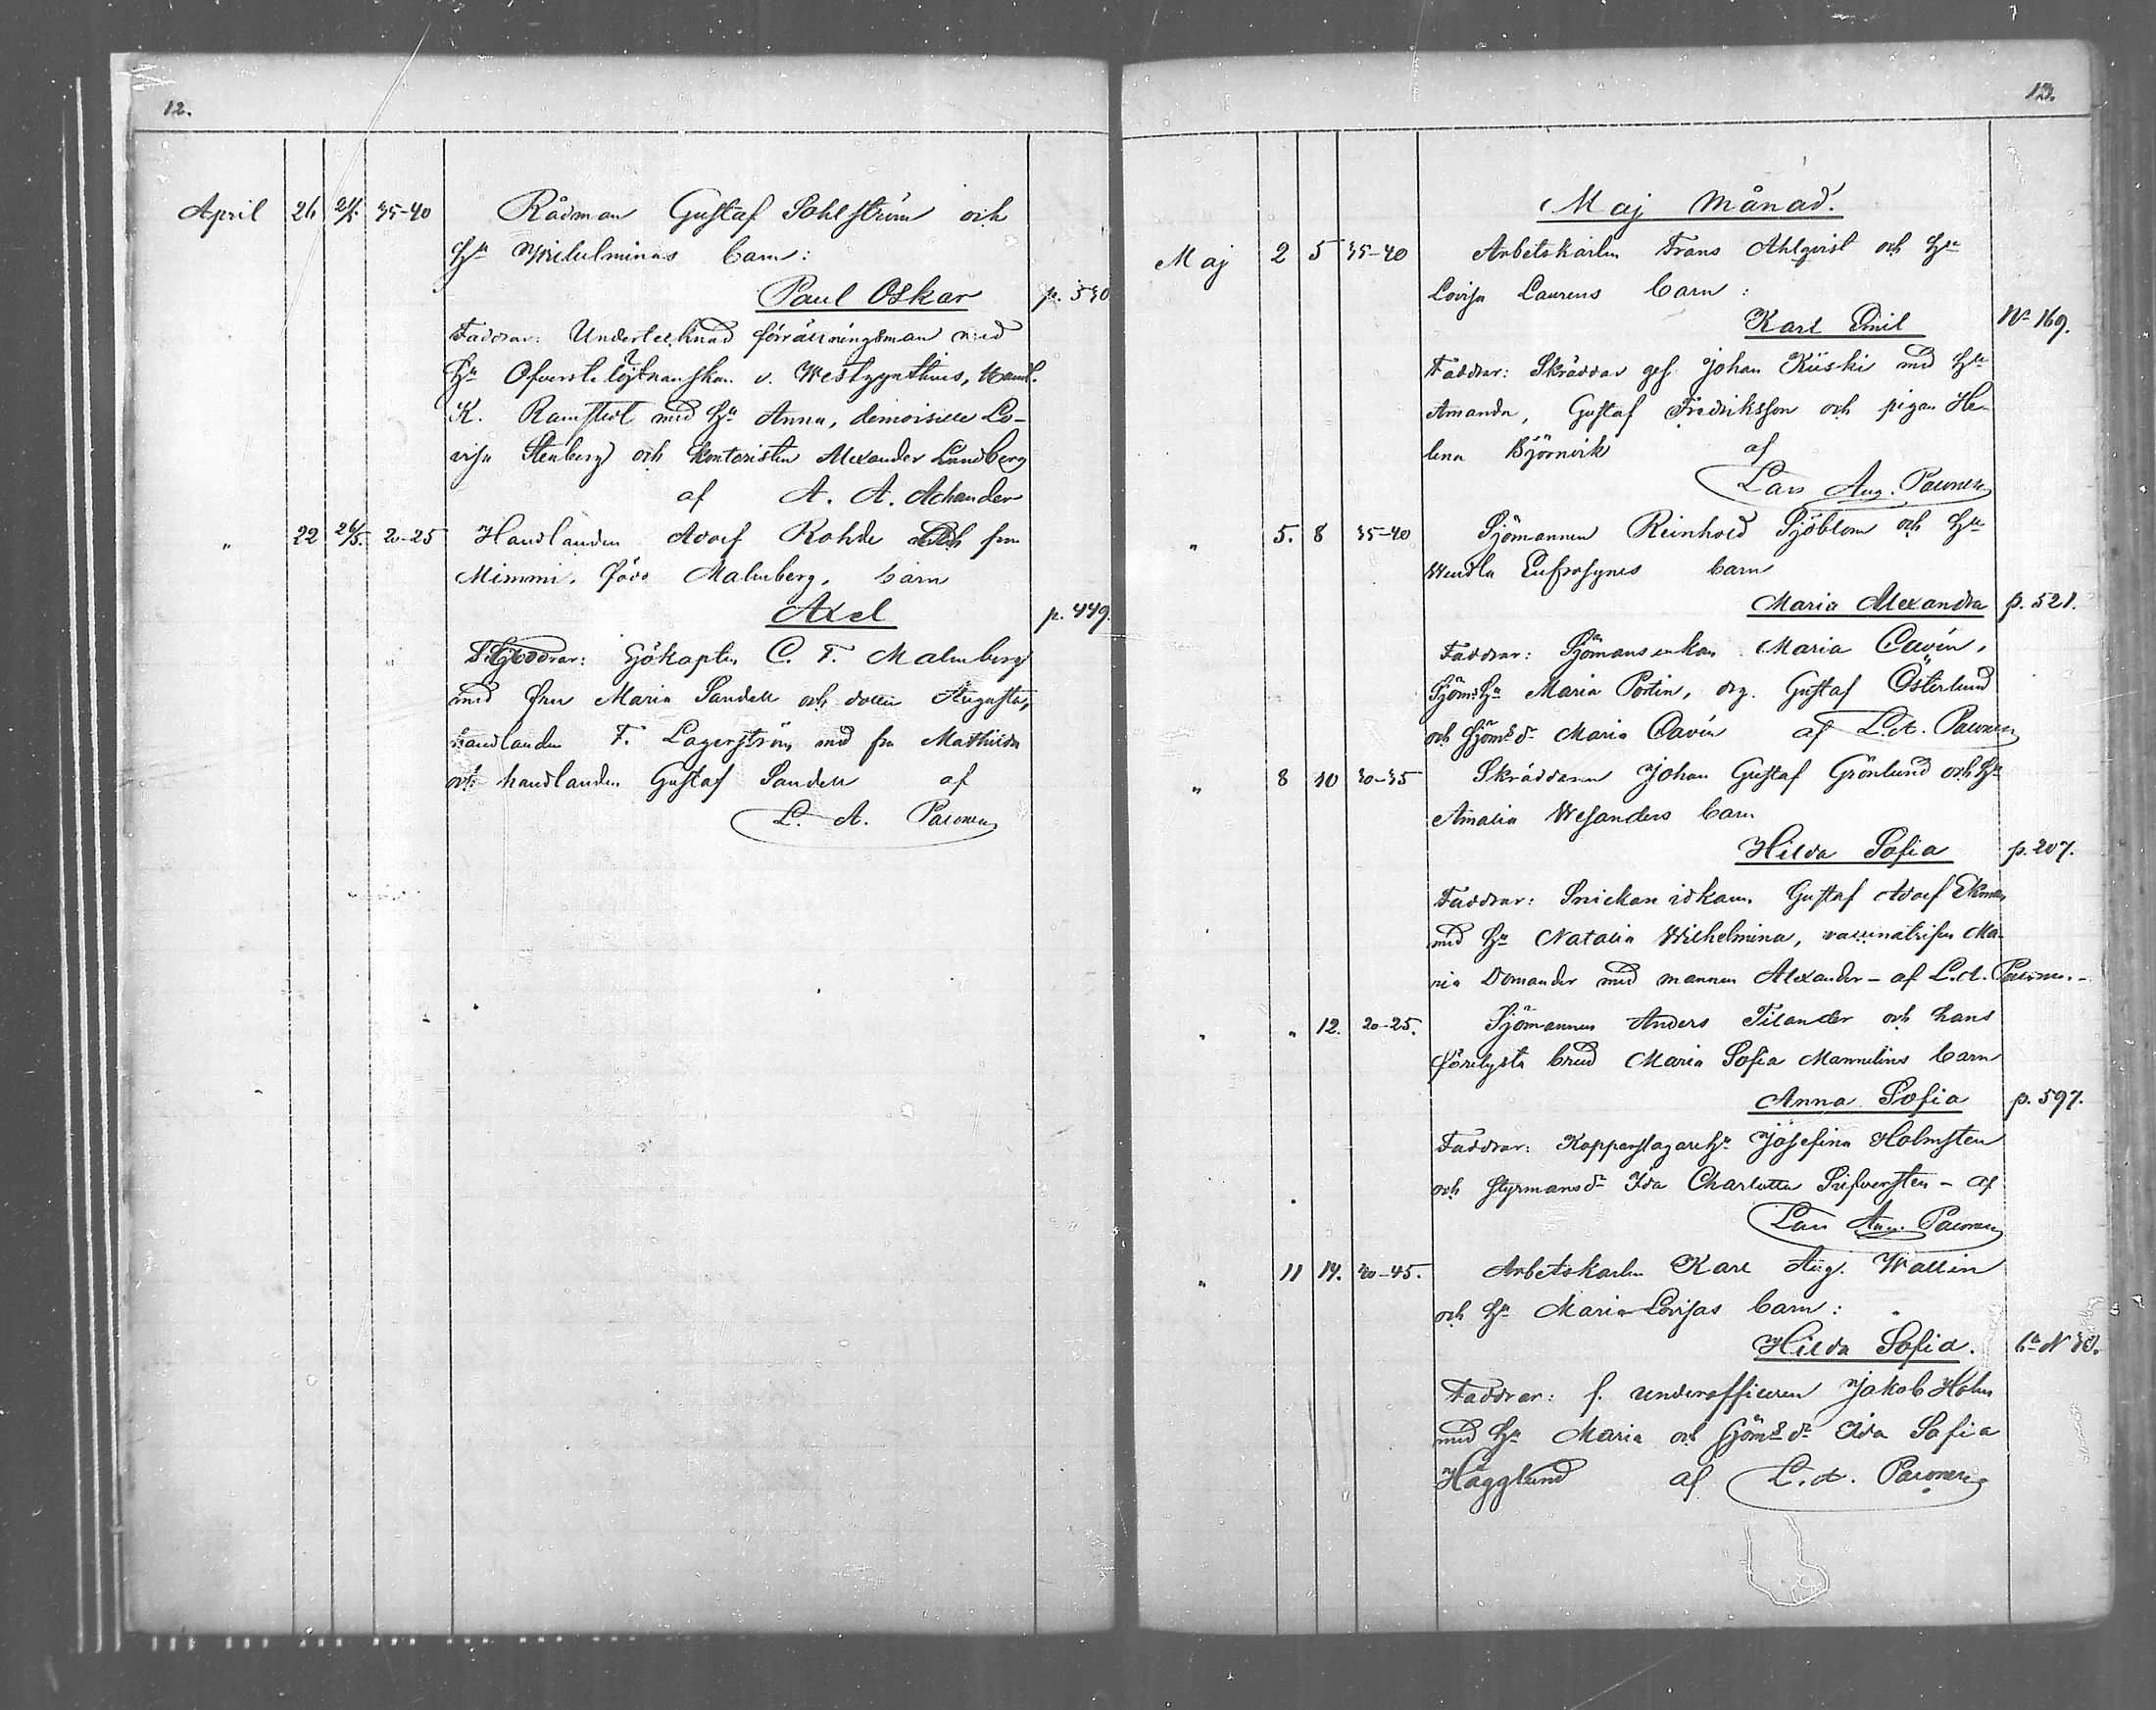 12.
April 26 21/5. 35-40 Rådman Gustaf Sohlström och
Hu Wilhelminas barn:
Paul Oskar p. 530
Faddrar: Undertecknad förrättningsman med
Hu Öfverste löjtnanskan v. Westzynthius, Handl.
K. Ramstedt med Hu Anna, demoiselle Lo-
visa Stenberg och kontoristen Alexander Lundberg
af A. A. Achander
" 22 26/5. 20-25 Handlanden Adolf Rohde och fru
Mimmi, född Malmberg, barn
Axel p. 449.
Faddrar: Sjökapten C. F. Malmberg
med fru Maria Sandell och dotter Augusta,
handlanden F. Lagerström med fru Mathilda
och handlanden Gustaf Sandell af
L. A. Paconen
13.
Maj Månad.
Maj 2 5 35-40 Arbetskarlen Frans Ahlqvist och Hu
Lovisa Laurens barn:
Karl Emil No 169.
Faddrar: Skräddar ges. Johan Kiiski med Hu
Amanda, Gustaf Fredriksson och pigan He-
lena Björnvik af
Lars Aug. Paconen
" 5. 8 35-40 Sjömannen Reinhold Sjöblom och Hu
Wendla Eufrosynes barn
Maria Alexandra p. 521.
Faddrar: Sjömansenkan Maria Cavén,
Sjöms Hu Maria Portin, drg. Gustaf Österlund
och sjöms dr Maria Cavén af L. A. Paconen
" 8 10 30-35 Skräddaren Johan Gustaf Grönlund och Hu
Amalia Wesanders barn
Hilda Sofia p. 207.
Faddrar: Snickari idkaren Gustaf Adolf Ekman
med Hu Natalia Wilhelmina, vaccinatrisen Ma-
ria Domander med mannen Alexander - af L. A. Paconen.-
" " 12. 20-25. Sjömannen Anders Tilander och hans
förelysta brud Maria Sofia Mannelins barn
Anna Sofia p. 597.
Faddrar: Kopparslagare Hu Josefina Holmsten
och styrmans dr Ida Charlotta Silfversten - af
Lars Aug. Paconen
" 11 14. 40-45. Arbetskarlen Karl Aug. Wallin
och Hu Maria Lovisas barn:
Hilda Sofia.
Faddrar: f. underofficeren Jakob Holm
med Hu Maria och sjöms dr Ida Sofia
Hägglund af L. A. Paconen